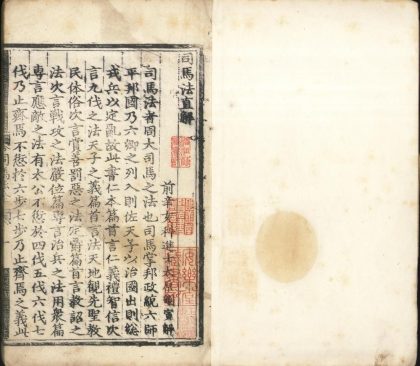 司馬法直解
前辛亥科進士太原劉寅解
司馬法者周大司馬之法也司馬掌邦政統六師
平邦國乃六卿之列入則佐天子以治國出則總
戎兵以定亂故此書仁本篇首言仁義禮智信次
言九伐之法天子之義篇首言法天地觀先聖教
民體俗次言賞善罰惡之法定爵篇首言教詔之
法次言戰攻之法嚴位篇專言治兵之法用衆篇
專言應敵之法有太公不愆於四伐五伐六伐七
伐乃止齊焉不愆於六步七步乃止齊焉之義此